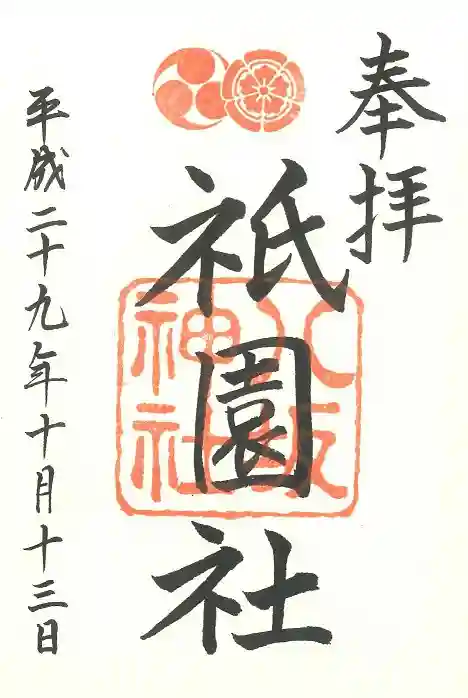 奉拝
祇園社
八坂
神社
平成二十九年十月十三日